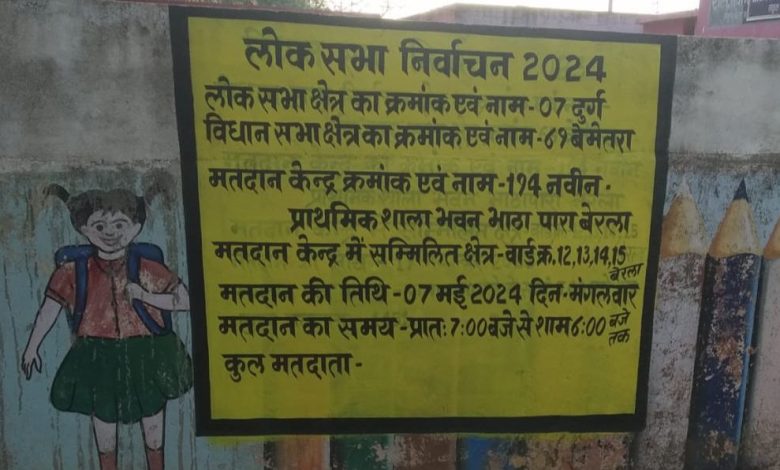 लोक सभा निर्वाचन 2024
लोक सभा क्षेत्र का क्रमांक एवं नाम-07 दुर्ग
विधान सभा क्षेत्र का क्रमांक एवं नाम-६९ बेमेतरा
मतदान केन्द्र क्रमांक एवं नाम-194 नवीन.
प्राथमिक शाला भवन भाठा पारा बेरला
मतदान केन्द्र में सम्मिलित क्षेत्र-वार्ड क्र.12,13,14,15 बेरला
मतदान की तिथि-07 मई 2024 दिन-मंगलवार
मतदान का समय-प्रातः 7:00 बजे से शाम ६:00 बजे तक
कुल मतदाता-